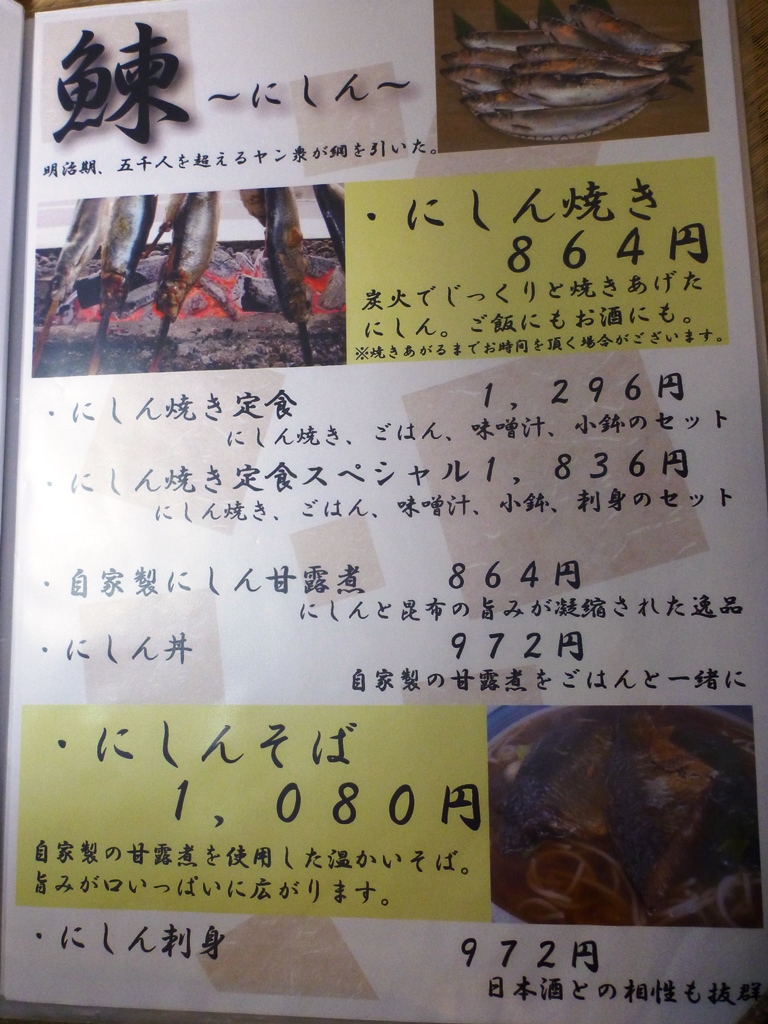 鰊 ～にしん～
明治期、五千人を超えるヤン衆が網を引いた。
・にしん焼き
864円
炭火でじっくりと焼きあげた
にしん。ご飯にもお酒にも。
※焼きあがるまでお時間を頂く場合がございます。
・にしん焼き定食 1,296円
にしん焼き、ごはん、味噌汁、小鉢のセット
・にしん焼き定食スペシャル1,836円
にしん焼き、ごはん、味噌汁、小鉢、刺身のセット
・自家製にしん甘露煮 864円
にしんと昆布の旨みが凝縮された逸品
・にしん丼 972円
自家製の甘露煮をごはんと一緒に
・にしんそば
1,080円
自家製の甘露煮を使用した温かいそば。
旨みが口いっぱいに広がります。
・にしん刺身 972円
日本酒との相性も抜群